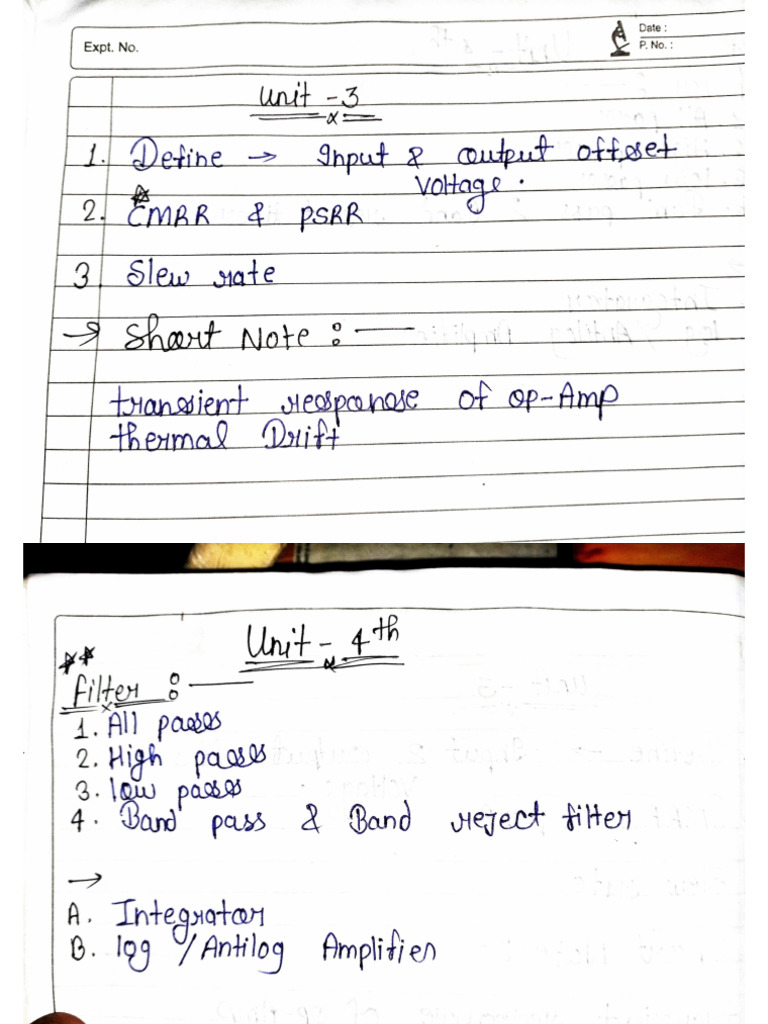 Expt. No.
Date :
P. No. :
Unit - 3
1. Define → Input & output offset
voltage.
2. CMRR & PSRR
3. Slew rate
→ Short Note :-
transient response of op-Amp
thermal Drift
Unit - 4th
filter :-
1. All passes
2. High passes
3. low passes
4. Band pass & Band reject filter
→
A. Integrator
B. log / Antilog Amplifier